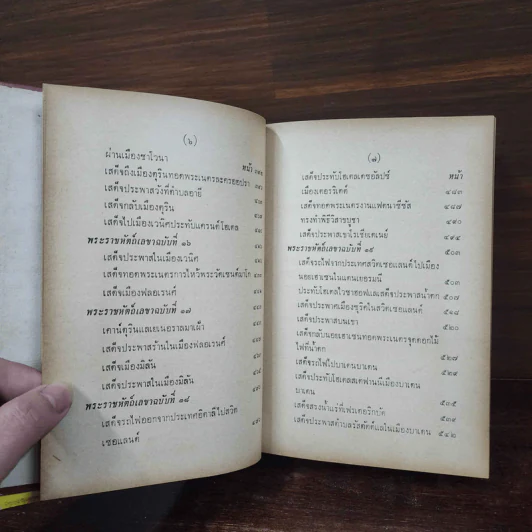 (๖)
หน้า
ผ่านเมืองซาโวนา
เสด็จถึงเมืองตุรินทอดพระเนตรละครออปรา
เสด็จประพาสวังที่ตำบลอายี
เสด็จกลับเมืองตุริน
เสด็จไปเมืองเวนิศประทับแครนด์โฮเตล
พระราชหัตถ์เลขาฉบับที่ ๑๖
เสด็จประพาสในเมืองเวนิศ
เสด็จทอดพระเนตรการไหว้พระวัดเซนต์มาโก
เสด็จเมืองฟลอเรนศ์
พระราชหัตถ์เลขาฉบับที่ ๑๗
เสด็จประพาสร้านในเมืองฟลอเรนศ์
เสด็จเมืองมิลัน
เสด็จประพาสในเมืองมิลัน
พระราชหัตถ์เลขาฉบับที่ ๑๘
เสด็จรถไฟออกจากประเทศอิตาลีไปสวิต
เซอแลนด์
(๗)
หน้า
เสด็จประทับโฮเตลเดซอัลปซ์
เมืองเตอริเตต์ ๔๘๓
เสด็จทอดพระเนตรงานแฟตนาซีซัส ๔๘๗
ทรงทำพิธีวิสาขบูชา ๔๙๐
เสด็จประพาสเขาโรเชีย ๔๙๕
พระราชหัตถ์เลขาฉบับที่ ๑๙ ๕๐๓
เสด็จรถไฟจากประเทศสวิตเซอแลนด์ไปเมือง
นอยเฮาเซนในแดนเยอรมนี ๕๐๓
ประทับโฮเตลไวซาฮอฟแลเสด็จประพาสน้ำตก ๕๐๗
เสด็จประพาศเมืองซูริคในสวิตเซอแลนด์ ๕๑๘
เสด็จประพาสบนเขา ๕๒๐
เสด็จกลับนอยเฮาเซนทอดพระเนตรจุดดอกไม้
ไฟที่น้ำตก ๕๒๗
เสด็จรถไฟไปบาเดนบาเดน ๕๒๙
เสด็จประทับโฮเตลสเตฟานนีเมืองบาเดน
บาเดน
เสด็จสรงน้ำแร่ที่เฟรเดอริกบัด ๕๓๙
เสด็จประพาสตำบลในเมืองบาเดน ๕๔๒